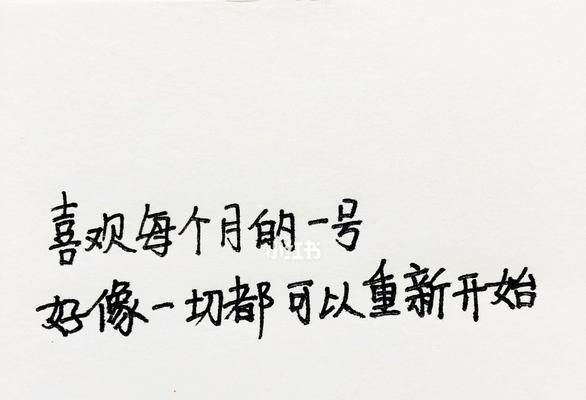 喜欢每个月的一号
小红书
好像一切都可以重新开始